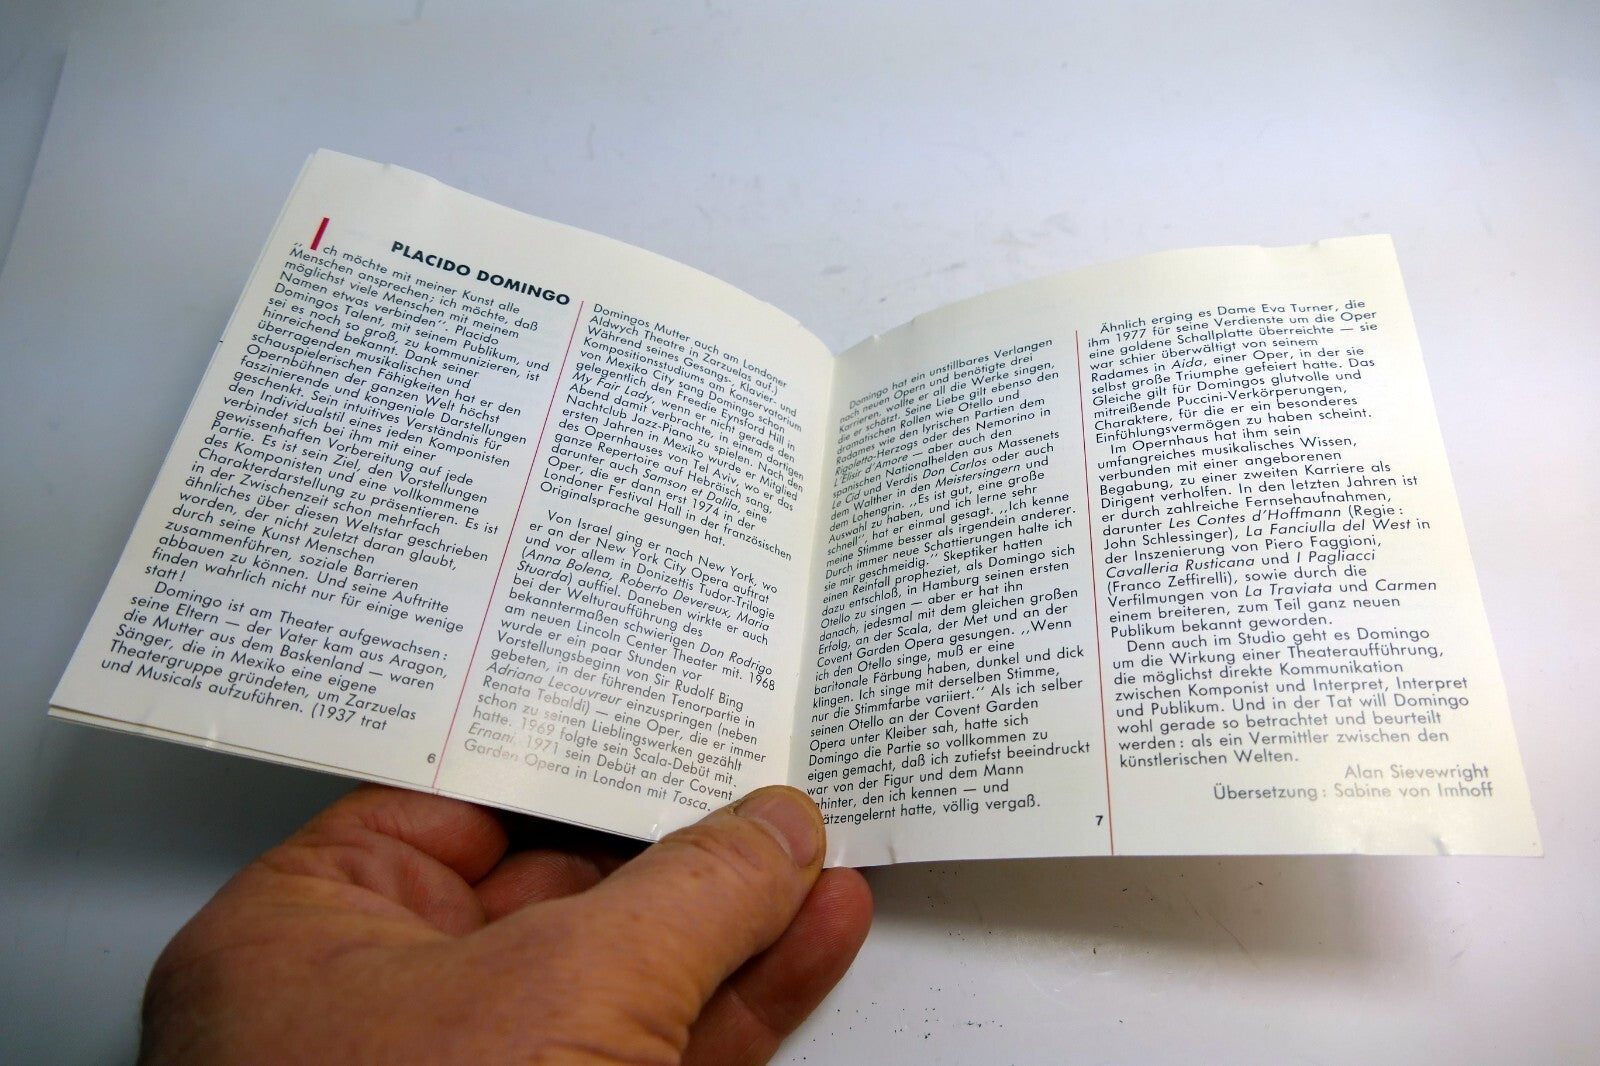 PLACIDO DOMINGO
„Ich möchte mit meiner Kunst alle
Menschen ansprechen; ich möchte, daß
möglichst viele Menschen mit meinem
Namen etwas verbinden“. Placido
Domingos Talent, mit seinem Publikum, und
sei es noch so groß, zu kommunizieren, ist
hinreichend bekannt. Dank seiner
überragenden musikalischen und
schauspielerischen Fähigkeiten hat er den
Opernbühnen der ganzen Welt höchst
faszinierende und kongeniale Darstellungen
geschenkt. Sein intuitives Verständnis für
den Individualstil eines jeden Komponisten
verbindet sich bei ihm mit einer
gewissenhaften Vorbereitung auf jede
Partie. Es ist sein Ziel, den Vorstellungen
des Komponisten und eine vollkommene
Charakterdarstellung zu präsentieren. Es ist
in der Zwischenzeit schon mehrfach
ähnliches über diesen Weltstar geschrieben
worden, der nicht zuletzt daran glaubt,
durch seine Kunst Menschen
zusammenführen, soziale Barrieren
abbauen zu können. Und seine Auftritte
finden wahrlich nicht nur für einige wenige
statt!
Domingo ist am Theater aufgewachsen:
seine Eltern — der Vater kam aus Aragon,
die Mutter aus dem Baskenland — waren
Sänger, die in Mexiko eine eigene
Theatergruppe gründeten, um Zarzuelas
und Musicals aufzuführen. (1937 trat
6
Domingos Mutter auch am Londoner
Aldwych Theatre in Zarzuelas auf.)
Während seines Gesangs-, Klavier- und
Kompositionsstudiums am Konservatorium
von Mexiko City sang Domingo schon
gelegentlich den Freedie Eynsford Hill in
My Fair Lady, wenn er nicht gerade den
Abend damit verbrachte, in einem dortigen
Nachtclub Jazz-Piano zu spielen. Nach den
ersten Jahren in Mexiko wurde er Mitglied
des Opernhauses von Tel Aviv, wo er das
ganze Repertoire auf Hebräisch sang,
darunter auch Samson et Dalila, eine
Oper, die er dann erst 1974 in der
Londoner Festival Hall in der französischen
Originalsprache gesungen hat.
Von Israel ging er nach New York, wo
er an der New York City Opera auftrat
und vor allem in Donizettis Tudor-Trilogie
(Anna Bolena, Roberto Devereux, Maria
Stuarda) auffiel. Daneben wirkte er auch
bei der Welturaufführung des
bekanntermaßen schwierigen Don Rodrigo
am neuen Lincoln Center Theater mit. 1968
wurde er ein paar Stunden vor
Vorstellungsbeginn von Sir Rudolf Bing
gebeten, in der führenden Tenorpartie in
Adriana Lecouvreur einzuspringen (neben
Renata Tebaldi) — eine Oper, die er immer
schon zu seinen Lieblingswerken gezählt
hatte. 1969 folgte sein Scala-Debüt mit
Ernani, 1971 sein Debüt an der Covent
Garden Opera in London mit Tosca.
Domingo hat ein unstillbares Verlangen
nach neuen Opern und benötigte drei
Karrieren, wollte er all die Werke singen,
die er schätzt. Seine Liebe gilt ebenso den
dramatischen Rollen wie Otello und
Radames wie den lyrischen Partien dem
Rigoletto-Herzogs oder des Nemorino in
L'Elisir d'Amore — aber auch den
spanischen Nationalhelden aus Massenets
Le Cid und Verdis Don Carlos oder auch
dem Walther in den Meistersingern und
dem Lohengrin. „Es ist gut, eine große
Auswahl zu haben, und ich lerne sehr
schnell“, hat er einmal gesagt. „Ich kenne
meine Stimme besser als irgendein anderer.
Durch immer neue Schattierungen halte ich
sie mir geschmeidig.“ Skeptiker hatten
einen Reinfall prophezeit, als Domingo sich
dazu entschloß, in Hamburg seinen ersten
Otello zu singen — aber er hat ihn
danach, jedesmal mit dem gleichen großen
Erfolg, an der Scala, der Met und an der
Covent Garden Opera gesungen. „Wenn
ich den Otello singe, muß er eine
baritonale Färbung haben, dunkel und dick
klingen. Ich singe mit derselben Stimme,
nur die Stimmfarbe variiert.“ Als ich selber
seinen Otello an der Covent Garden
Opera unter Kleiber sah, hatte sich
Domingo die Partie so vollkommen zu
eigen gemacht, daß ich zutiefst beeindruckt
war von der Figur und dem Mann
ahinter, den ich kennen — und
ätzengelernt hatte, völlig vergaß.
7
Ähnlich erging es Dame Eva Turner, die
ihm 1977 für seine Verdienste um die Oper
eine goldene Schallplatte überreichte — sie
war schier überwältigt von seinem
Radames in Aida, einer Oper, in der sie
selbst große Triumphe gefeiert hatte. Das
Gleiche gilt für Domingos glutvolle und
mitreißende Puccini-Verkörperungen,
Charaktere, für die er ein besonderes
Einfühlungsvermögen zu haben scheint.
Im Opernhaus hat ihm sein
umfangreiches musikalisches Wissen,
verbunden mit einer angeborenen
Begabung, zu einer zweiten Karriere als
Dirigent verholfen. In den letzten Jahren ist
er durch zahlreiche Fernsehaufnahmen,
darunter Les Contes d'Hoffmann (Regie:
John Schlessinger), La Fanciulla del West in
der Inszenierung von Piero Faggioni,
Cavalleria Rusticana und I Pagliacci
(Franco Zeffirelli), sowie durch die
Verfilmungen von La Traviata und Carmen
einem breiteren, zum Teil ganz neuen
Publikum bekannt geworden.
Denn auch im Studio geht es Domingo
um die Wirkung einer Theateraufführung,
die möglichst direkte Kommunikation
zwischen Komponist und Interpret, Interpret
und Publikum. Und in der Tat will Domingo
wohl gerade so betrachtet und beurteilt
werden: als ein Vermittler zwischen den
künstlerischen Welten.
Alan Sievewright
Übersetzung: Sabine von Imhoff